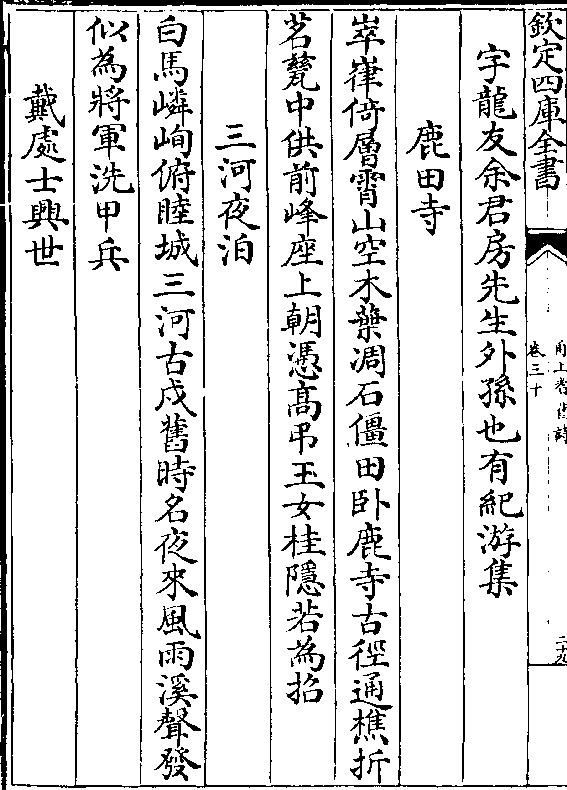 欽定四庫全書
甬上耆舊詩
卷三十
二十九
字龍友余君房先生外孫也有紀游集
鹿田寺
崒嵂倚層霄山空木葉凋石僵田臥鹿寺古徑通樵折
茗甆中供前峰座上朝憑髙弔玉女桂隱若為招
三河夜泊
白馬嶙峋俯睦城三河古戍舊時名夜來風雨溪聲發
似為將軍洗甲兵
戴處士興世